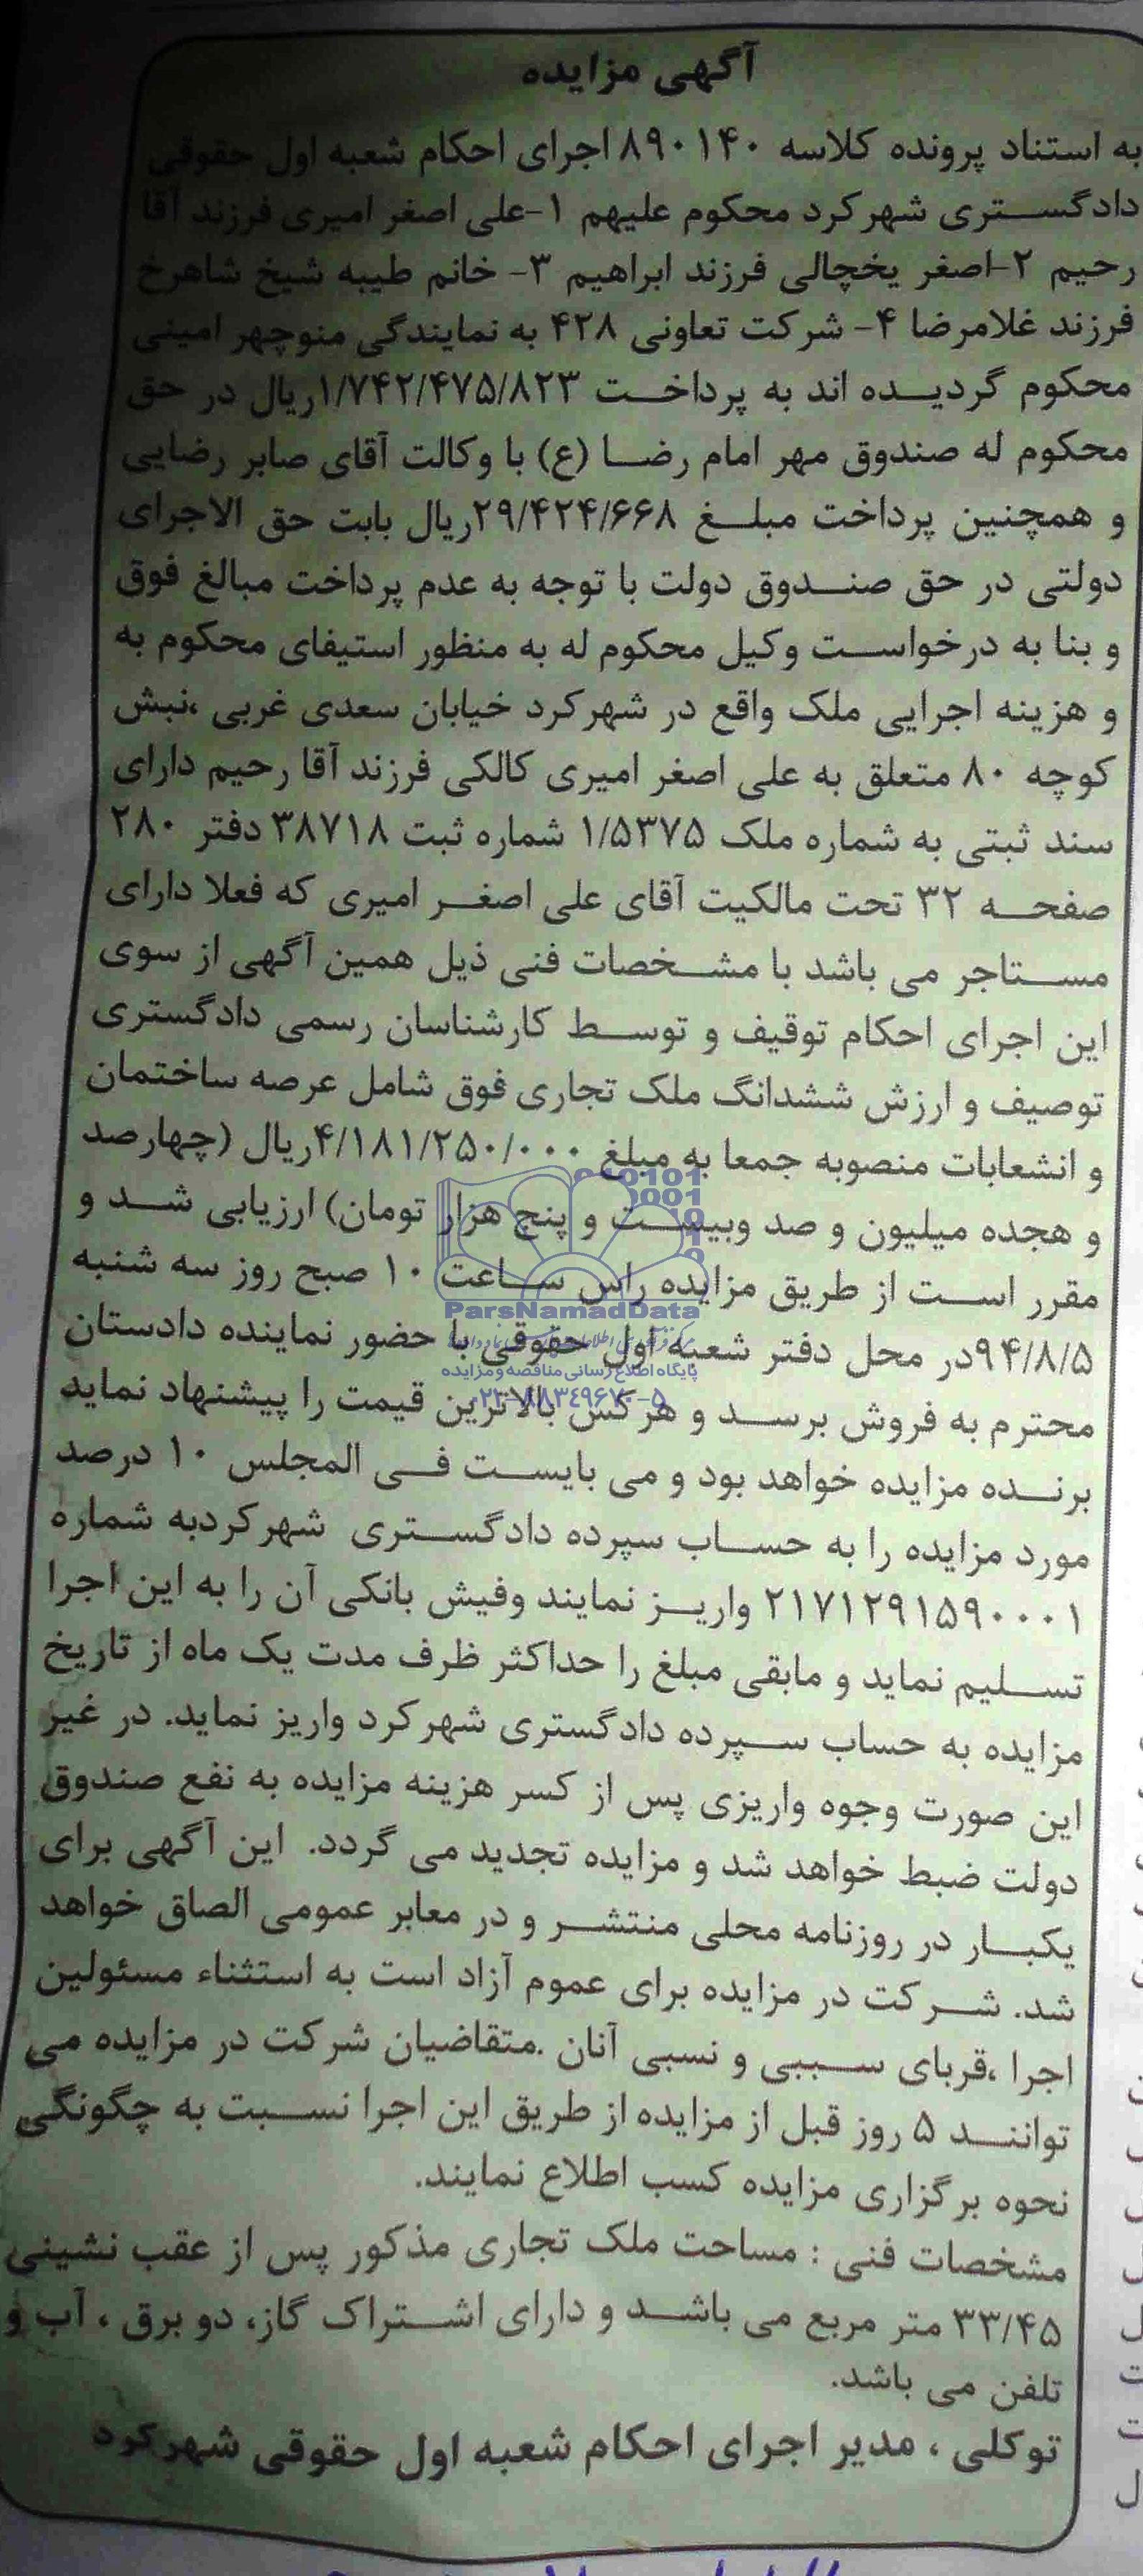 آگهی مزایده
به استناد پرونده کلاسه ۸۹۰۱۴۰ اجرای احکام شعبه اول حقوقی
دادگستری شهرکرد محکوم علیهم ۱-علی اصغر امیری فرزند آقا
رحیم ۲-اصغر یخچالی فرزند ابراهیم ۳- خانم طیبه شیخ شاهرخ
فرزند غلامرضا ۴- شرکت تعاونی ۴۲۸ به نمایندگی منوچهر امینی
محکوم گردیده اند به پرداخت ۱/۷۴۲/۴۷۵/۸۲۳ریال در حق
محکوم له صندوق مهر امام رضا (ع) با وکالت آقای صابر رضایی
و همچنین پرداخت مبلغ ۲۹/۴۲۴/۶۶۸ریال بابت حق الاجرای
دولتی در حق صندوق دولت با توجه به عدم پرداخت مبالغ فوق
و بنا به درخواست وکیل محکوم له به منظور استیفای محکوم به
و هزینه اجرایی ملک واقع در شهرکرد خیابان سعدی غربی ،نبش
کوچه ۸۰ متعلق به علی اصغر امیری کالکی فرزند آقا رحیم دارای
سند ثبتی به شماره ملک ۱/۵۳۷۵ شماره ثبت ۳۸۷۱۸ دفتر ۲۸۰
صفحه ۳۲ تحت مالکیت آقای علی اصغر امیری که فعلا دارای
مستاجر می باشد با مشخصات فنی ذیل همین آگهی از سوی
این اجرای احکام توقیف و توسط کارشناسان رسمی دادگستری
توصیف و ارزش ششدانگ ملک تجاری فوق شامل عرصه ساختمان
و انشعابات منصوبه جمعا به مبلغ ۴/۱۸۱/۲۵۰/۰۰۰ریال (چهارصد
و هجده میلیون و صد وبیست و پنج هزار تومان) ارزیابی شد و
مقرر است از طریق مزایده راس ساعت ۱۰ صبح روز سه شنبه
۹۴/۸/۵در محل دفتر شعبه اول حقوقی با حضور نماینده دادستان
محترم به فروش برسد و هرکس بالاترین قیمت را پیشنهاد نماید
برنده مزایده خواهد بود و می بایست فی المجلس ۱۰ درصد
مورد مزایده را به حساب سپرده دادگستری شهرکردبه شماره
۲۱۷۱۲۹۱۵۹۰۰۰۱ واریز نمایند وفیش بانکی آن را به این اجرا
تسلیم نماید و مابقی مبلغ را حداکثر ظرف مدت یک ماه از تاریخ
مزایده به حساب سپرده دادگستری شهرکرد واریز نماید. در غیر
این صورت وجوه واریزی پس از کسر هزینه مزایده به نفع صندوق
دولت ضبط خواهد شد و مزایده تجدید می گردد. این آگهی برای
یکبار در روزنامه محلی منتشر و در معابر عمومی الصاق خواهد
شد. شرکت در مزایده برای عموم آزاد است به استثناء مسئولین
اجرا ،قربای سببی و نسبی آنان .متقاضیان شرکت در مزایده می
توانند ۵ روز قبل از مزایده از طریق این اجرا نسبت به چگونگی
نحوه برگزاری مزایده کسب اطلاع نمایند.
مشخصات فنی : مساحت ملک تجاری مذکور پس از عقب نشینی
۳۳/۴۵ متر مربع می باشد و دارای اشتراک گاز، دو برق ، آب و
تلفن می باشد.
توکلی ، مدیر اجرای احکام شعبه اول حقوقی شهرکرد
ParsNamadData
پایگاه اطلاع رسانی مناقصه و مزایده